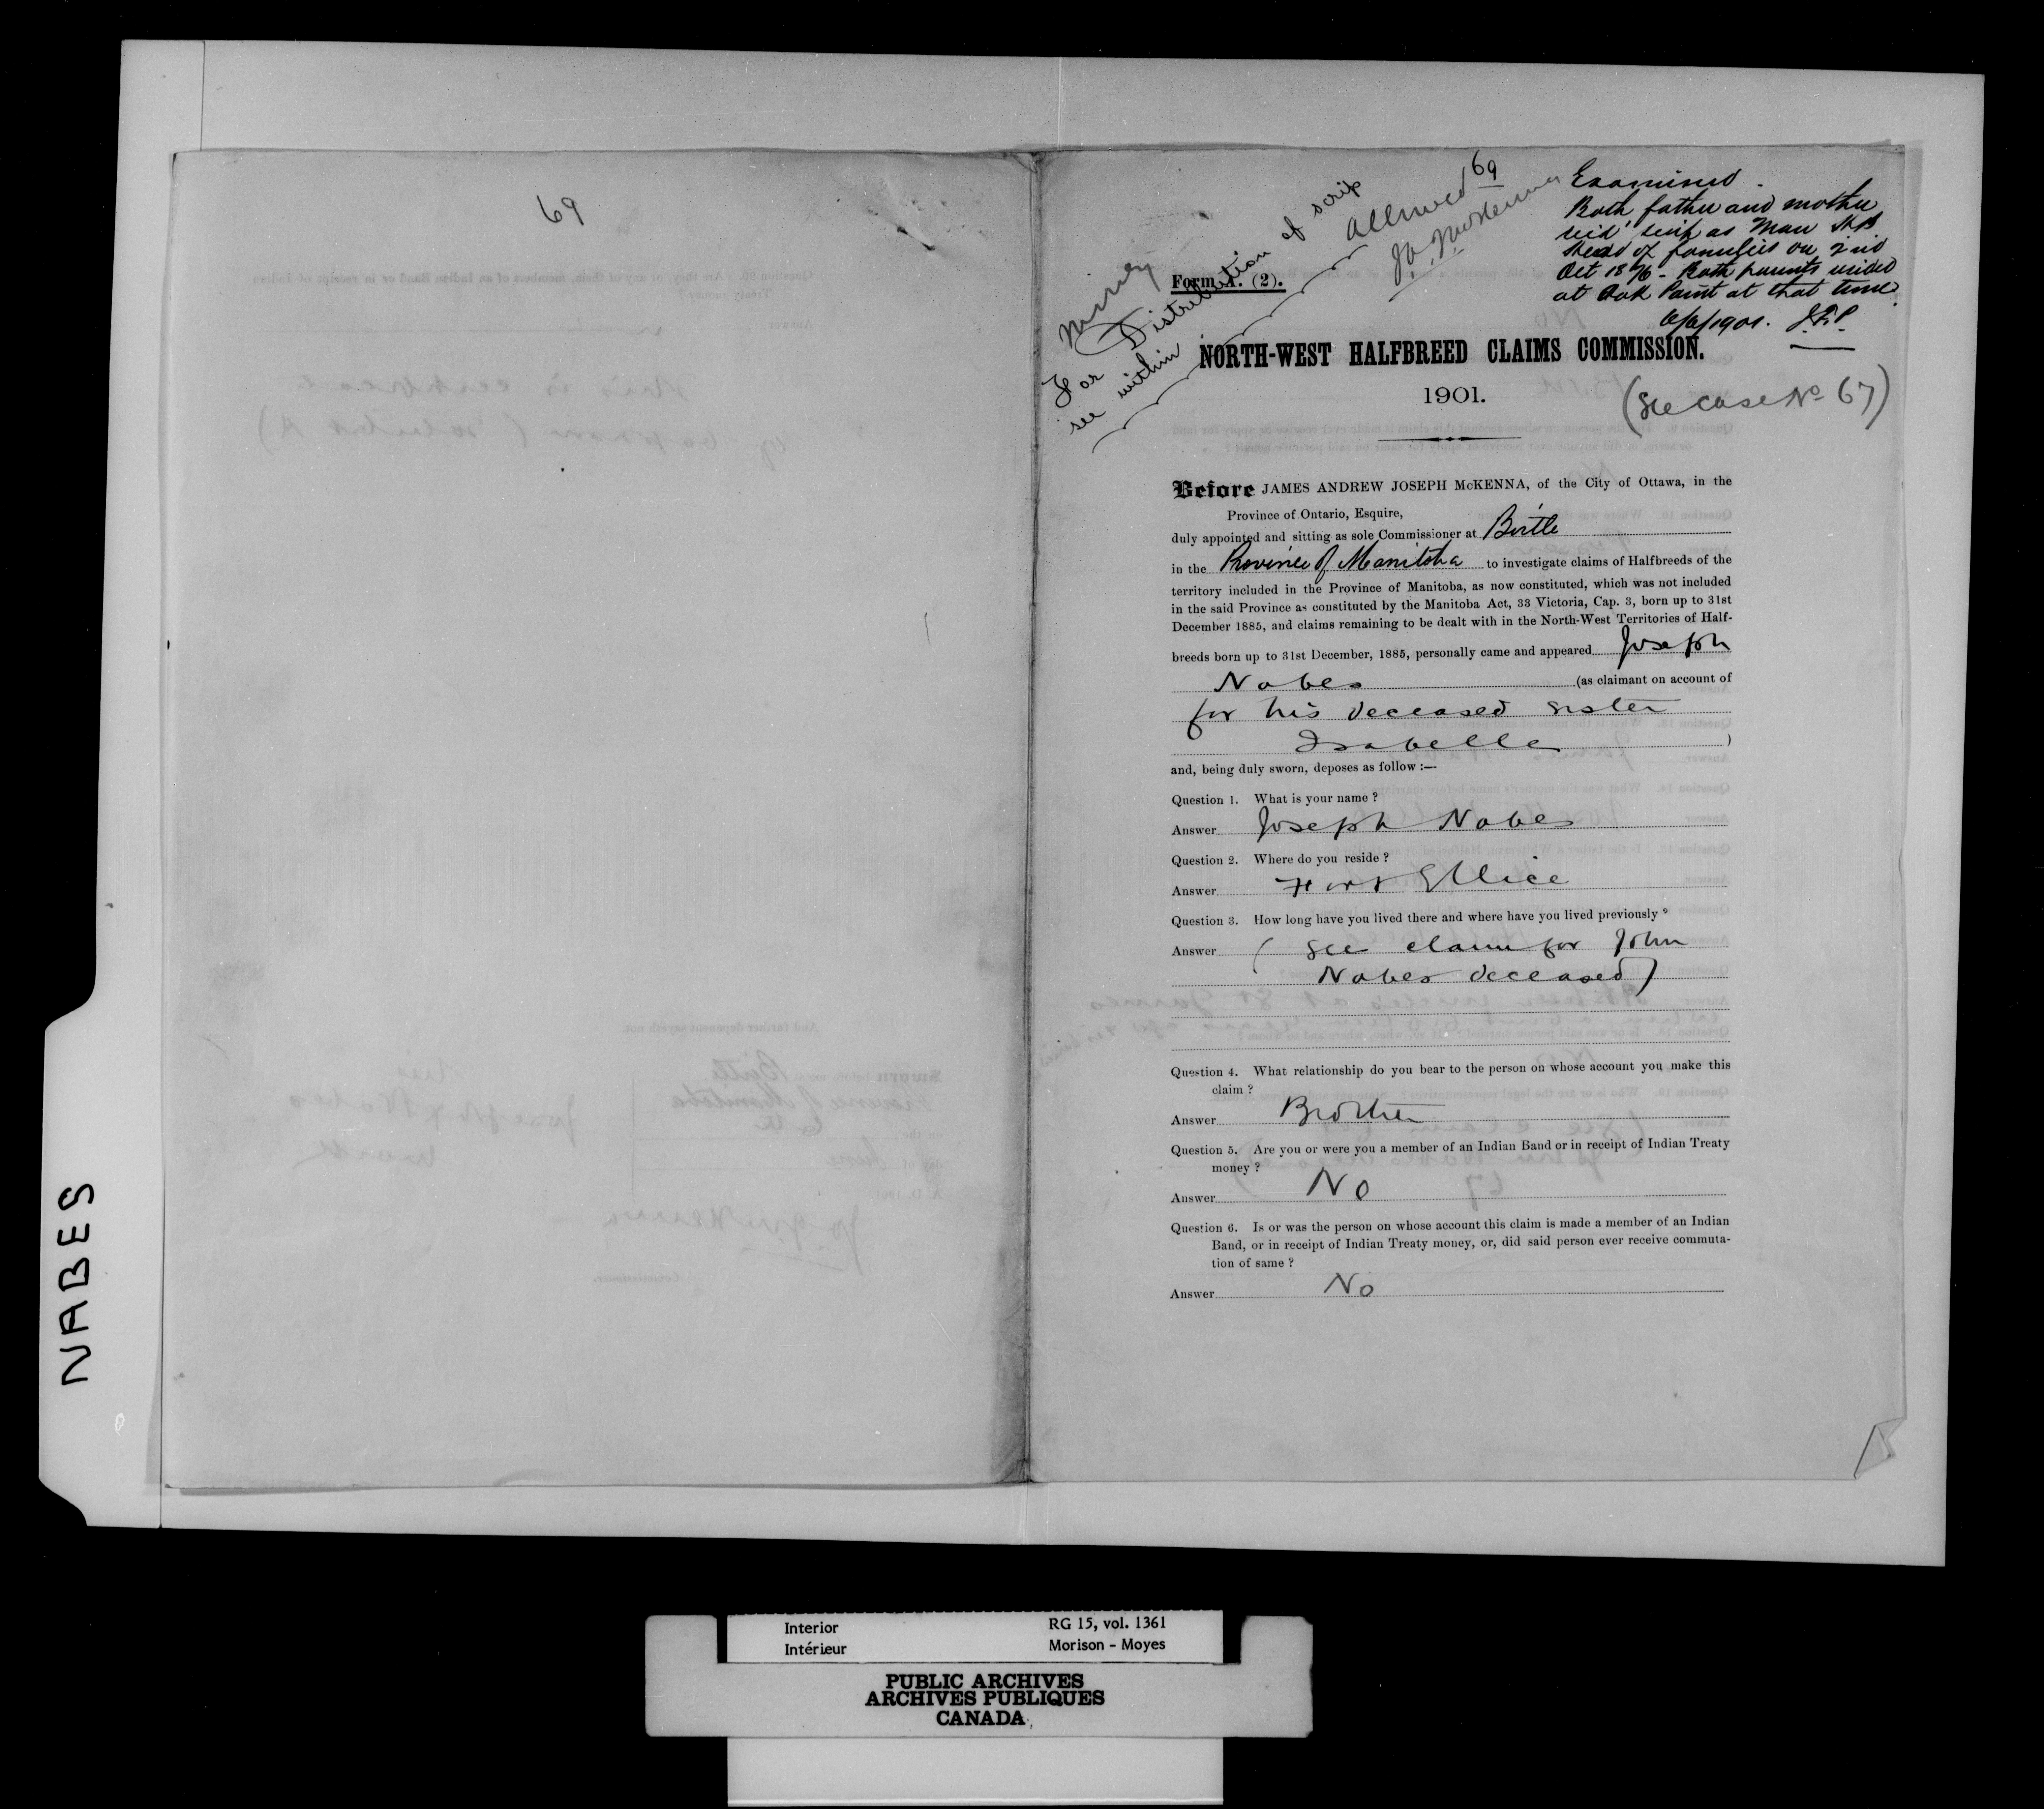 NABES
69
69
Money
For Distribution of scrip
see within
Allowed
J.A.J. McKenna
Examined.
Both father and mother
rec'd scrip as Man H B
Heads of families on 2nd
Oct 1876 - Both parents resided
at Oak Point at that time
6/6/1901. J.R.P.
Form A. (2).
NORTH-WEST HALFBREED CLAIMS COMMISSION.
1901.
(See case No 67)
Before JAMES ANDREW JOSEPH McKENNA, of the City of Ottawa, in the
Province of Ontario, Esquire,
duly appointed and sitting as sole Commissioner at Birtle
in the Province of Manitoba to investigate claims of Halfbreeds of the
territory included in the Province of Manitoba, as now constituted, which was not included
in the said Province as constituted by the Manitoba Act, 33 Victoria, Cap. 3, born up to 31st
December 1885, and claims remaining to be dealt with in the North-West Territories of Half-
breeds born up to 31st December, 1885, personally came and appeared Joseph
Nabes (as claimant on account of
for his deceased sister
Isabelle )
and, being duly sworn, deposes as follow :—
Question 1. What is your name ?
Answer Joseph Nabes
Question 2. Where do you reside ?
Answer Fort Ellice
Question 3. How long have you lived there and where have you lived previously ?
Answer ( See claim for John
Nabes deceased )
Question 4. What relationship do you bear to the person on whose account you make this
claim ?
Answer Brother
Question 5. Are you or were you a member of an Indian Band or in receipt of Indian Treaty
money ?
Answer No
Question 6. Is or was the person on whose account this claim is made a member of an Indian
Band, or in receipt of Indian Treaty money, or, did said person ever receive commuta-
tion of same ?
Answer No
Interior RG 15, vol. 1361
Intérieur Morison - Moyes
PUBLIC ARCHIVES
ARCHIVES PUBLIQUES
CANADA